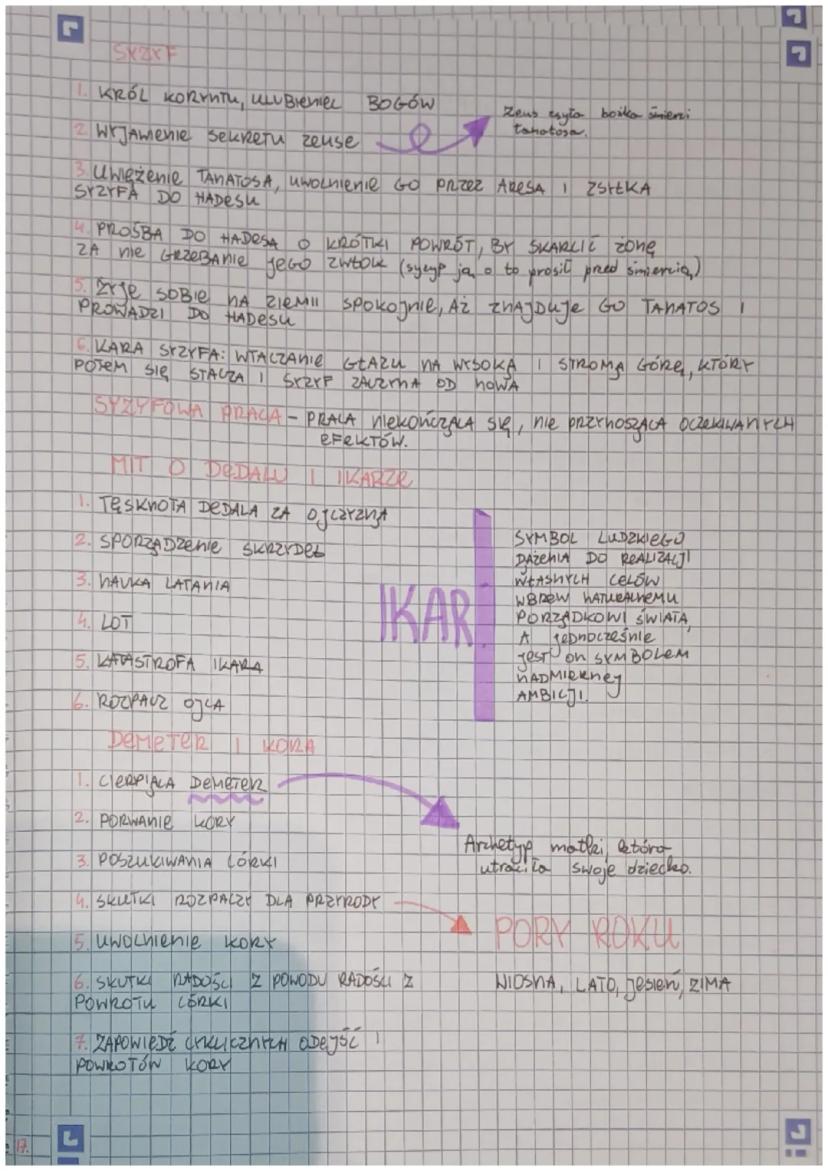 SYZYF
1. KRÓL KORYNTU, ULUBIENIEC BOGÓW
Zeus zsyła bożka śmierci
tanatosa.
2. WYJAWIENIE SEKRETU ZEUSE
3. UWIĘZENIE TANATOSA, UWOLNIENIE GO PRZEZ ARESA I ZSYŁKA
SYZYFA DO HADESU
4. PROŚBA DO HADESA O KRÓTKI POWRÓT, BY SKARCIĆ ŻONĘ
ZA NIE GRZEBANIE JEGO ZWŁOK (syzyf ją o to prosił przed śmiercią)
5. ŻYJE SOBIE NA ZIEMII SPOKOJNIE, AŻ ZNAJDUJE GO TANATOS I
PROWADZI DO HADESU
6. KARA SYZYFA: WTACZANIE GŁAZU NA WYSOKĄ I STROMĄ GÓRĘ, KTÓRY
POTEM SIĘ STACZA I SYZYF ZACZYNA OD NOWA
SYZYFOWA PRACA - PRACA NIEKOŃCZĄCA SIĘ, NIE PRZYNOSZĄCA OCZEKIWANYCH
EFEKTÓW.
MIT O DEDALU I IKARZE
1. TĘSKNOTA DEDALA ZA OJCZYZNĄ
2. SPORZĄDZENIE SKRZYDEŁ
3. NAUKA LATANIA
4. LOT
5. KATASTROFA IKARA
6. ROZPACZ OJCA
IKAR
SYMBOL LUDZKIEGO
DĄŻENIA DO REALIZACJI
WŁASNYCH CELÓW
WBREW NATURALNEMU
PORZĄDKOWI ŚWIATA,
A JEDNOCZEŚNIE
JEST ON SYMBOLEM
NADMIERNEJ
AMBICJI.
DEMETER I KORA
1. CIERPIĄCA DEMETER
2. PORWANIE KORY
3. POSZUKIWANIA CÓRKI
Archetyp matki która
utraciła swoje dziecko.
4. SKUTKI ROZPACZY DLA PRZYRODY
PORY ROKU
5. UWOLNIENIE KORY
6. SKUTKI RADOŚCI Z POWODU RADOŚCI Z
POWROTU CÓRKI
WIOSNA, LATO, JESIEŃ, ZIMA
7. ZAPOWIEDŹ CYKLICZNYCH ODEJŚĆ I
POWROTÓW KORY
17.